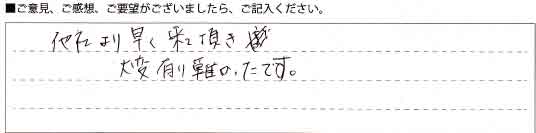 ■ご意見、ご感想、ご要望がございましたら、ご記入ください。
他社より早く来て頂き
大変有り難かったです。